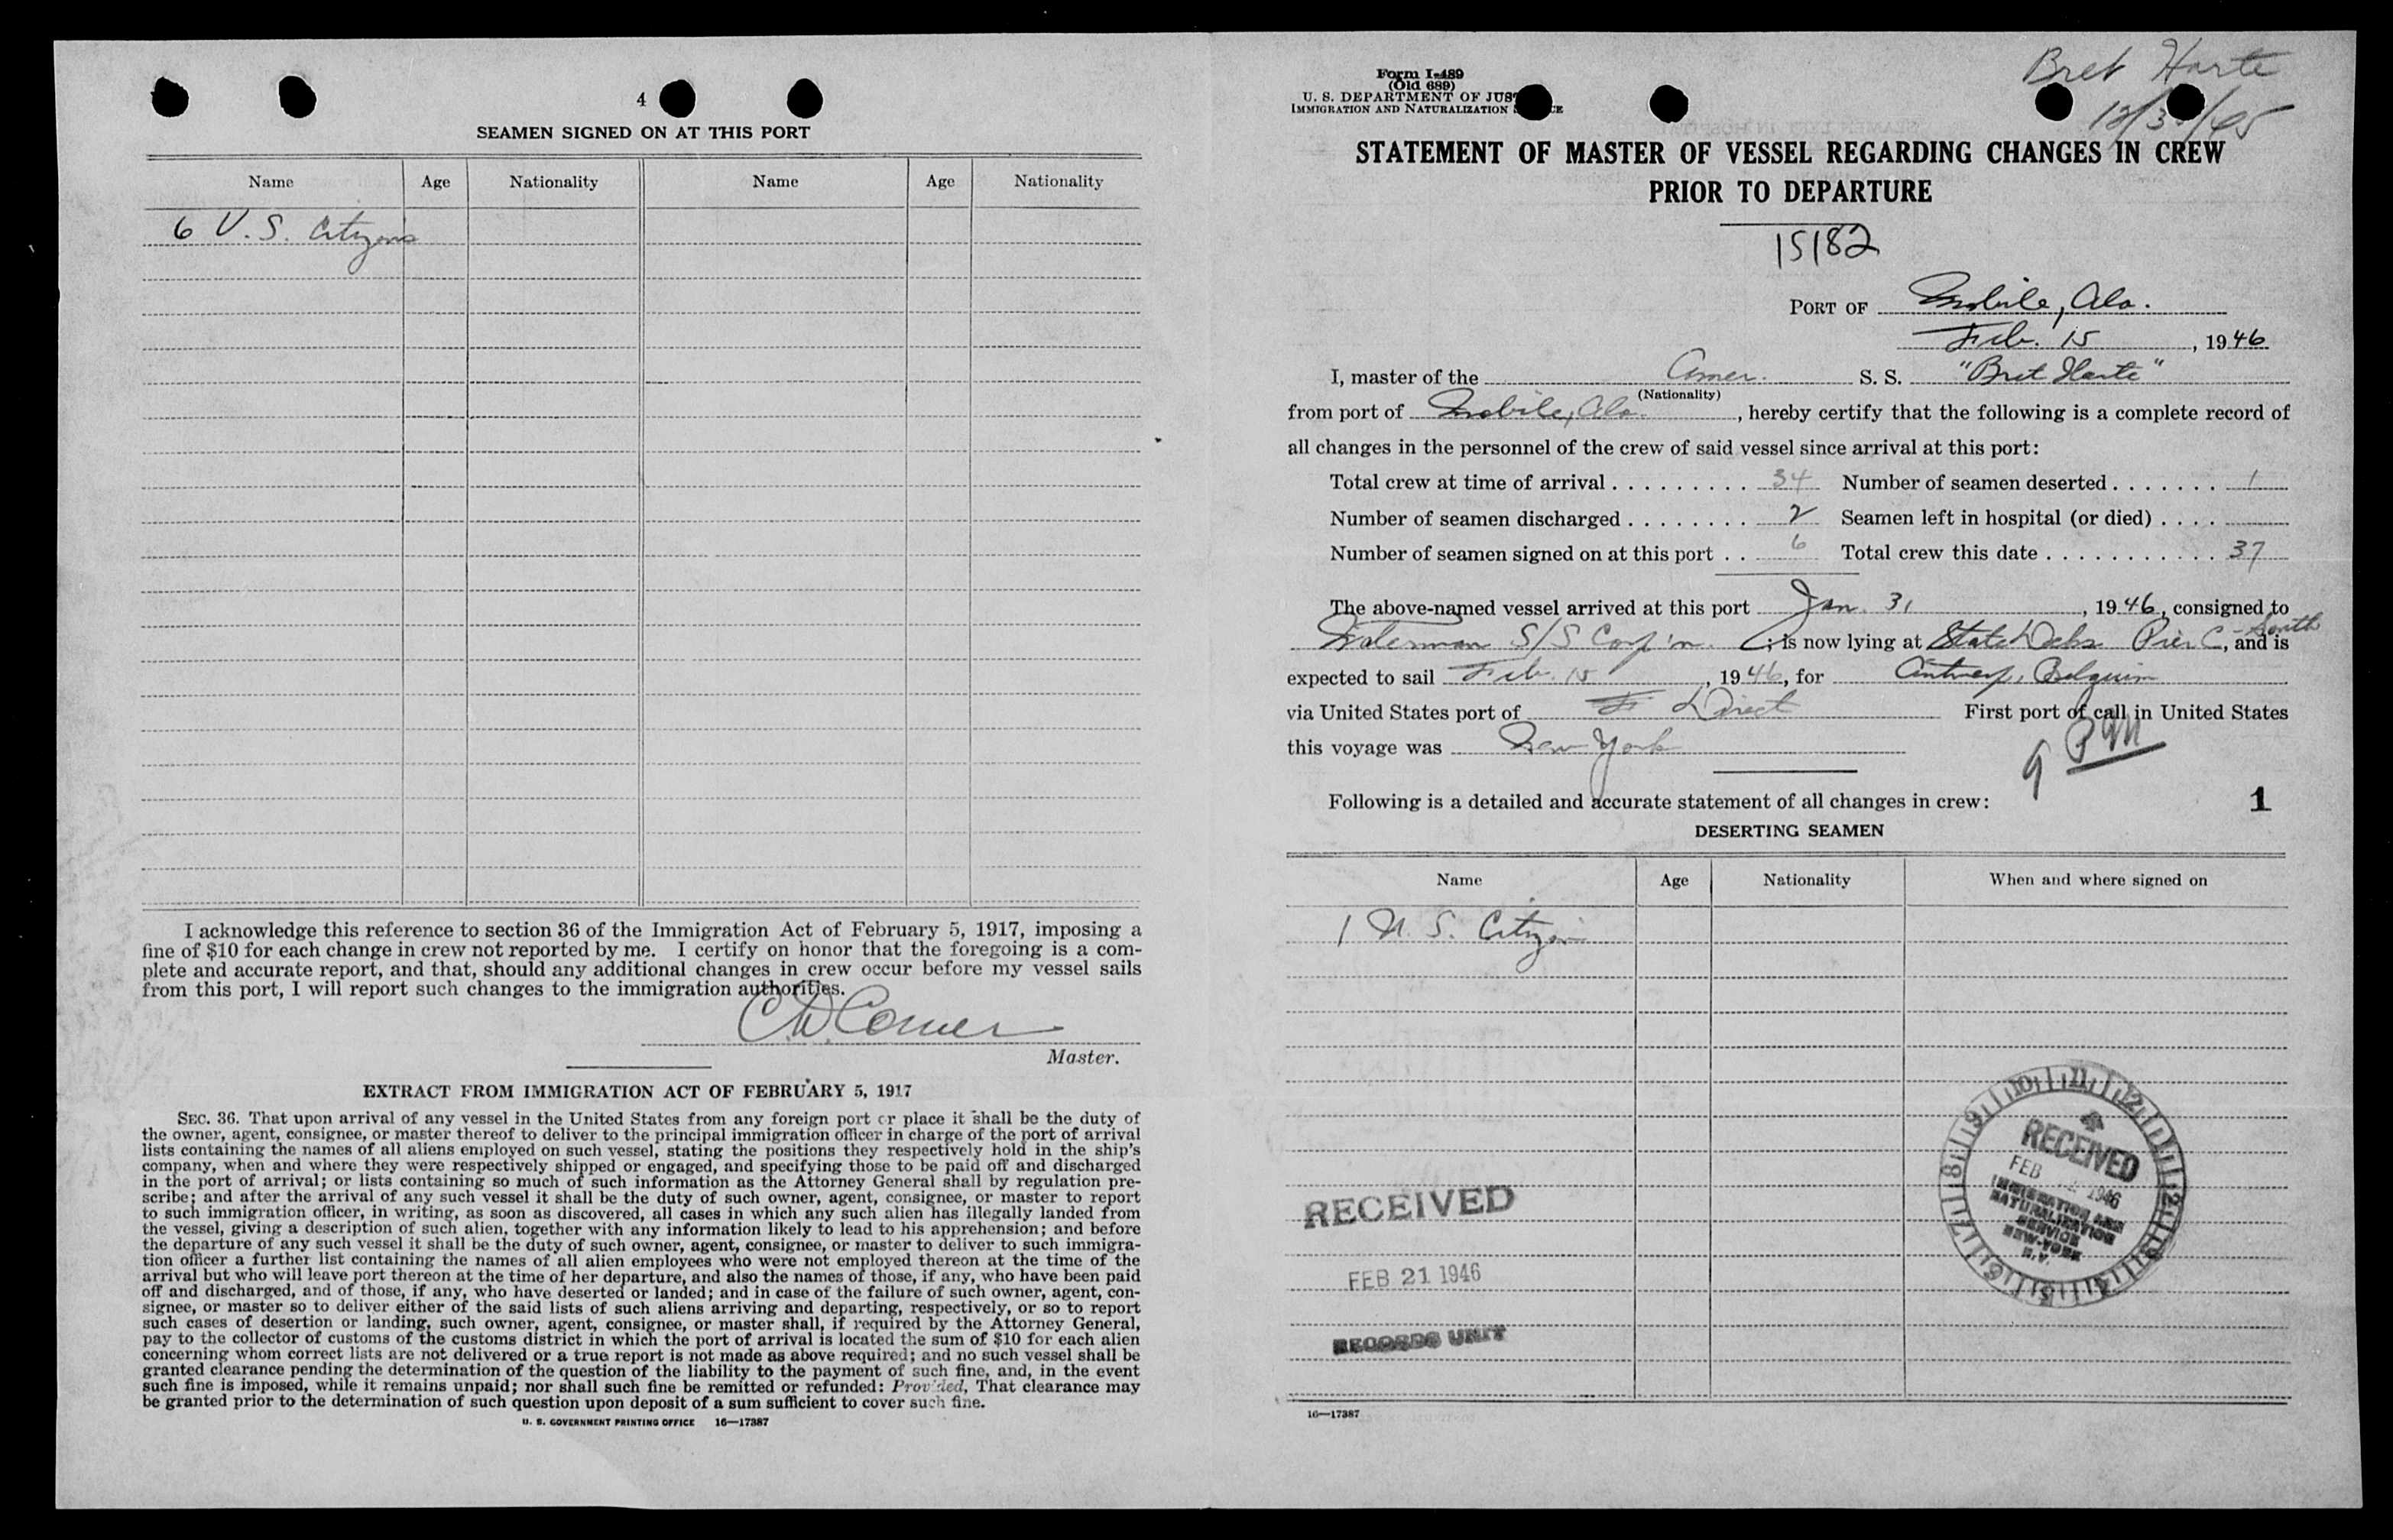 4
SEAMEN SIGNED ON AT THIS PORT
Name Age Nationality Name Age Nationality
6 U. S. Citizens
I acknowledge this reference to section 36 of the Immigration Act of February 5, 1917, imposing a
fine of $10 for each change in crew not reported by me. I certify on honor that the foregoing is a com-
plete and accurate report, and that, should any additional changes in crew occur before my vessel sails
from this port, I will report such changes to the immigration authorities.
Master.
EXTRACT FROM IMMIGRATION ACT OF FEBRUARY 5, 1917
SEC. 36. That upon arrival of any vessel in the United States from any foreign port or place it shall be the duty of
the owner, agent, consignee, or master thereof to deliver to the principal immigration officer in charge of the port of arrival
lists containing the names of all aliens employed on such vessel, stating the positions they respectively hold in the ship's
company, when and where they were respectively shipped or engaged, and specifying those to be paid off and discharged
in the port of arrival; or lists containing so much of such information as the Attorney General shall by regulation pre-
scribe; and after the arrival of any such vessel it shall be the duty of such owner, agent, consignee, or master to report
to such immigration officer, in writing, as soon as discovered, all cases in which any such alien has illegally landed from
the vessel, giving a description of such alien, together with any information likely to lead to his apprehension; and before
the departure of any such vessel it shall be the duty of such owner, agent, consignee, or master to deliver to such immigra-
tion officer a further list containing the names of all alien employees who were not employed thereon at the time of the
arrival but who will leave port thereon at the time of her departure, and also the names of those, if any, who have been paid
off and discharged, and of those, if any, who have deserted or landed; and in case of the failure of such owner, agent, con-
signee, or master so to deliver either of the said lists of such aliens arriving and departing, respectively, or so to report
such cases of desertion or landing, such owner, agent, consignee, or master shall, if required by the Attorney General,
pay to the collector of customs of the customs district in which the port of arrival is located the sum of $10 for each alien
concerning whom correct lists are not delivered or a true report is not made as above required; and no such vessel shall be
granted clearance pending the determination of the question of the liability to the payment of such fine, and, in the event
such fine is imposed, while it remains unpaid; nor shall such fine be remitted or refunded: Provided, That clearance may
be granted prior to the determination of such question upon deposit of a sum sufficient to cover such fine.
U. S. GOVERNMENT PRINTING OFFICE 16—17387
Form I-489
(Old 689)
U. S. DEPARTMENT OF JUS
IMMIGRATION AND NATURALIZATION S CE
Bret Harte
STATEMENT OF MASTER OF VESSEL REGARDING CHANGES IN CREW
PRIOR TO DEPARTURE
15182
PORT OF Mobile, Ala.
Feb. 15, 1946
I, master of the Amer. S. S. "Bret Harte"
(Nationality)
from port of Mobile, Ala., hereby certify that the following is a complete record of
all changes in the personnel of the crew of said vessel since arrival at this port:
Total crew at time of arrival . . . . . . . . . 34 Number of seamen deserted . . . . . . . 1
Number of seamen discharged . . . . . . . . 2 Seamen left in hospital (or died) . . . .
Number of seamen signed on at this port . . 6 Total crew this date . . . . . . . . . . . 37
The above-named vessel arrived at this port Jan. 31, 1946, consigned to
Waterman S/S Corp'n.; is now lying at State Docks Pier C-South, and is
expected to sail Feb. 15, 1946, for Antwerp, Belguim
via United States port of Direct First port of call in United States
this voyage was New York
9 PM
Following is a detailed and accurate statement of all changes in crew:
1
DESERTING SEAMEN
Name Age Nationality When and where signed on
1 U. S. Citizen
RECEIVED
FEB 21 1946
RECORDS UNIT
RECEIVED
FEB 1946
IMMIGRATION AND
NATURALIZATION
SERVICE
NEW-YORK
N.Y.
16—17387